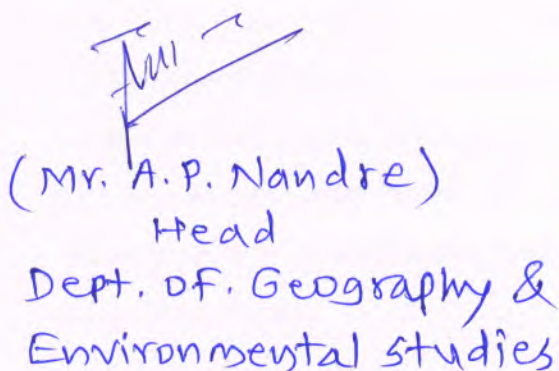 (Mr. A.P. Nandre)
Head
Dept. of. Geography &
Environmental studies